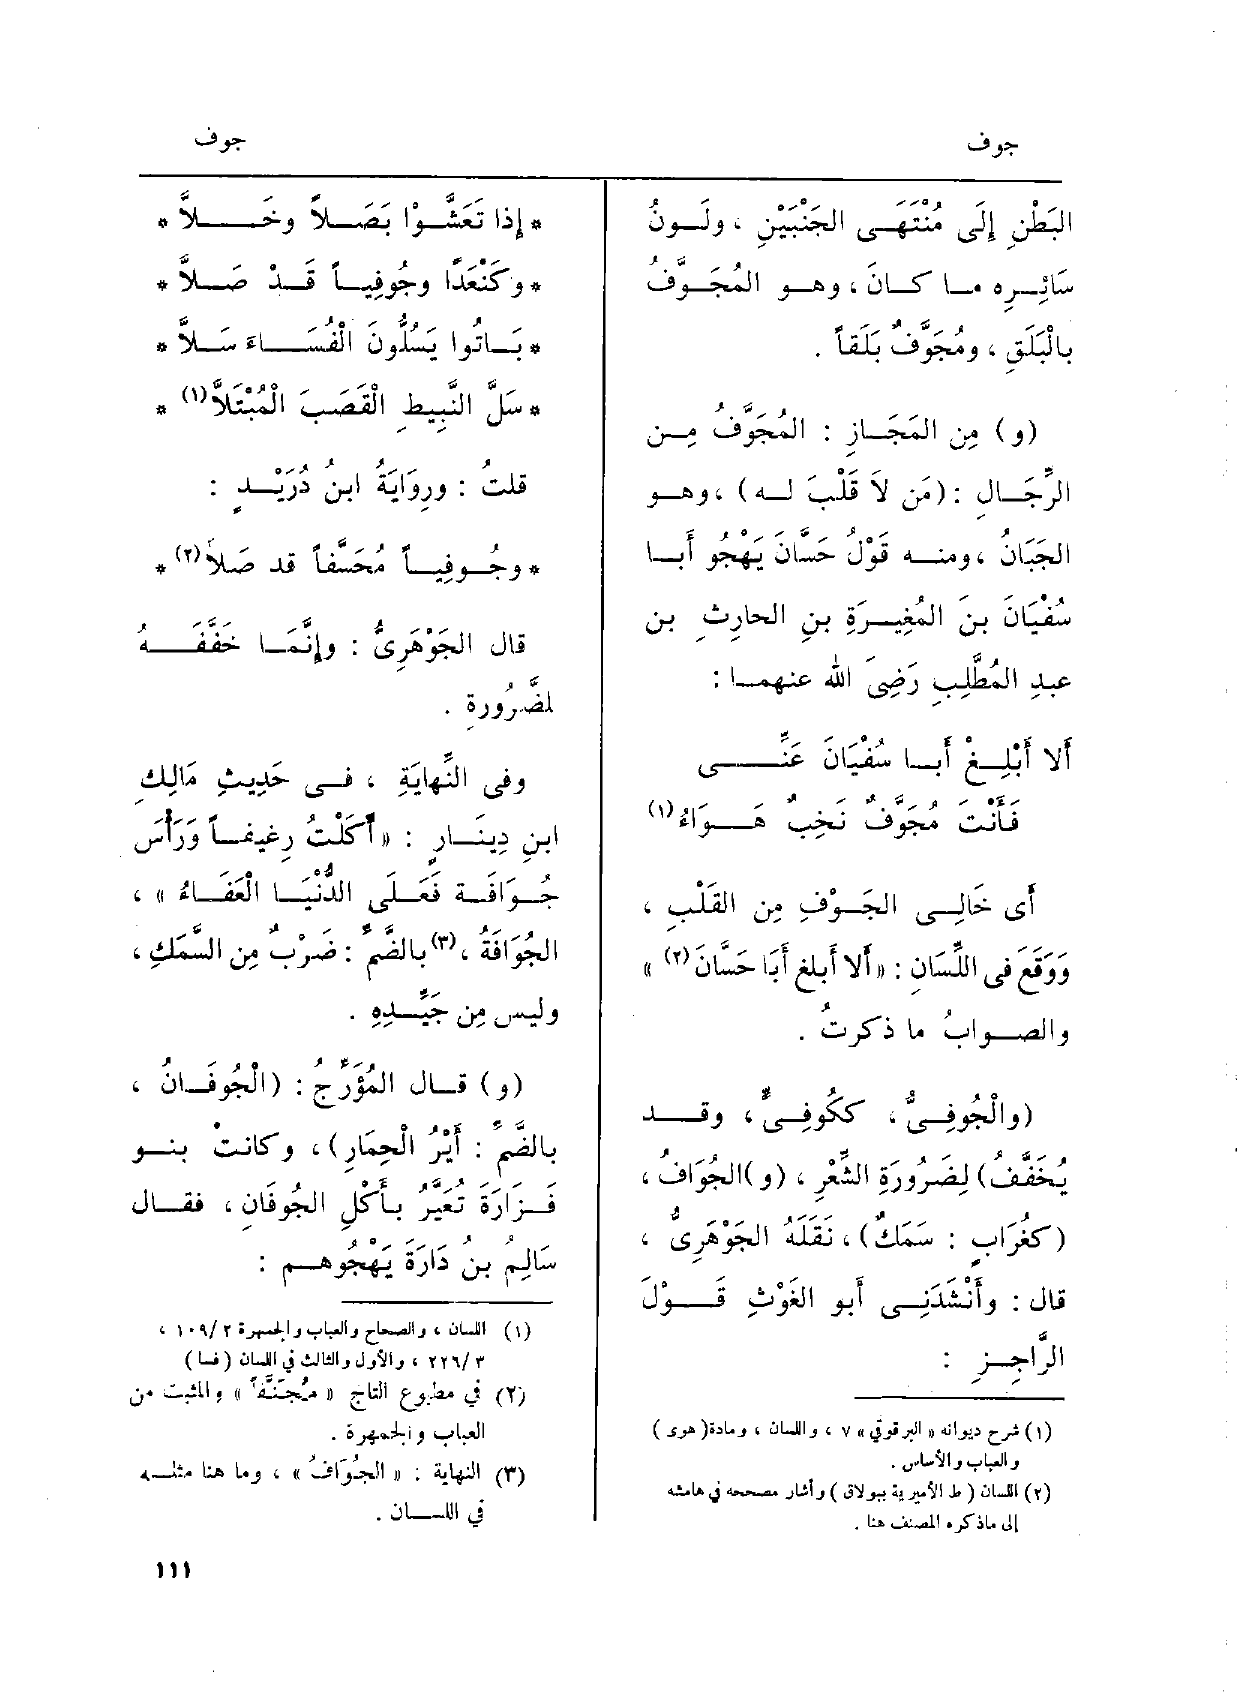 جوف
جوف
البَطْنِ إِلَى مُنْتَهَى الجَنْبَيْنِ ، ولَونُ
سَائِرِه ما كانَ ، وهو المُجَوَّفُ
بالْبَلَقِ ، ومُجَوَّفٌ بَلَقاً .
(و) مِن المَجَازِ : المُجَوَّفُ مِن
الرِّجَالِ : (مَن لاَ قَلْبَ له) ، وهو
الجَبَانُ ، ومنه قَوْلُ حَسَّانَ يَهْجُو أَبا
سُفْيَانَ بنَ المُغِيرَةِ بنِ الحارِثِ بن
عبدِ المُطَّلِبِ رَضِىَ الله عنهما :
أَلا أَبْلِغْ أَبا سُفْيَانَ عَنِّى
فَأَنْتَ مُجَوَّفٌ نَخِبٌ هَوَاءُ (١)
أَى خَالِى الجَوْفِ مِن القَلْبِ ،
وَوَقَعَ فى اللِّسَانِ : « أَلا أَبلغ أَبَا حَسَّانَ (٢) »
والصوابُ ما ذكرتُ .
(والْجُوفِىُّ ، ككُوفِىٍّ ، وقد
يُخَفَّفُ) لِضَرُورَةِ الشِّعْرِ ، (و) الجُوَافُ ،
(كغُرَابٍ : سَمَكٌ) ، نَقَلَهُ الجَوْهَرِىُّ ،
قال : وأَنْشَدَنِى أبو الغَوْثِ قَوْلَ
الرَّاجِزِ :
(١) شرح ديوانه « البرقوقي » ٧ ، واللسان ، ومادة (هوى)
والعباب والأساس .
(٢) اللسان ( ط الأميرية ببولاق ) وأشار مصححه في هامشه
إلى ماذكره المصنف هنا .
* إِذا تَعَشَّوْا بَصَلاً وخَلاًّ *
* وكَنْعَدًا وجُوفِياً قَدْ صَلاًّ *
* بَاتُوا يَسُلُّونَ الْفُسَاءَ سَلاًّ *
* سَلَّ النَّبِيطِ الْقَصَبَ الْمُبْتَلاًّ (١) *
قلتُ : ورِوَايَةُ ابنُ دُرَيْدٍ :
* وجُوفِياً مُحَسَّفاً قد صَلاَ (٢) *
قال الجَوْهَرِىُّ : وإِنَّمَا خَفَّفَهُ
لضَّرُورةِ .
وفى النِّهايَةِ ، فى حَدِيثِ مَالِكِ
ابنِ دِينَارٍ : « أَكَلْتُ رغِيفاً وَرَأْسَ
جُوَافَة فَعَلَى الدُّنْيَا العَفَاءُ » ،
الجُوَافَةُ ، (٣) بالضَّمِّ : ضَرْبٌ مِن السَّمَكِ ،
وليس مِن جَيِّدِهِ .
(و) قال المُؤَرِّجُ : (الْجُوفَانُ ،
بالضَّمِّ : أَيْرُ الْحِمَارِ) ، وكانتْ بنو
فَزَارَةَ تُعَيَّرُ بأَكْلِ الجُوفَانِ ، فقال
سَالِمُ بنُ دَارَةَ يَهْجُوهم :
(١) اللسان ، والصحاح والعباب والجمهرة ٢ / ١٠٩ ،
٣ / ٢٢٦ ، والأول والثالث في اللسان ( فسا )
(٢) في مطبوع التاج « مُجَنَّفًا » والمثبت من
العباب والجمهرة .
(٣) النهاية : « الجُوَافُ » ، وما هنا مثله
في اللسان .
١١١